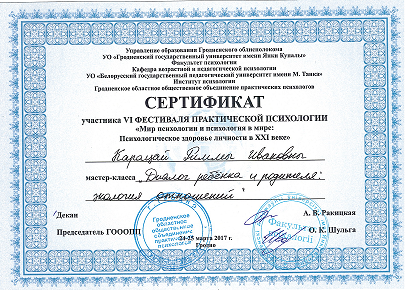 Управление образования Гродненского облисполкома
УО «Гродненский государственный университет имени Янки Купалы»
Факультет психологии
Кафедра возрастной и педагогической психологии
УО «Белорусский государственный педагогический университет имени М. Танка»
Институт психологии
Гродненское областное общественное объединение практических психологов
СЕРТИФИКАТ
участника VI ФЕСТИВАЛЯ ПРАКТИЧЕСКОЙ ПСИХОЛОГИИ
«Мир психологии и психология в мире:
Психологическое здоровье личности в XXI веке»
Риммы Ивановны
мастер-класса „Диалог ребёнка и родителя:
экология отношений"
Декан
А. В. Ракицкая
Председатель ГОООПП
О. К. Шульга
Гродненское областное общественное объединение практических психологов
24-25 марта 2017 г.
Гродно